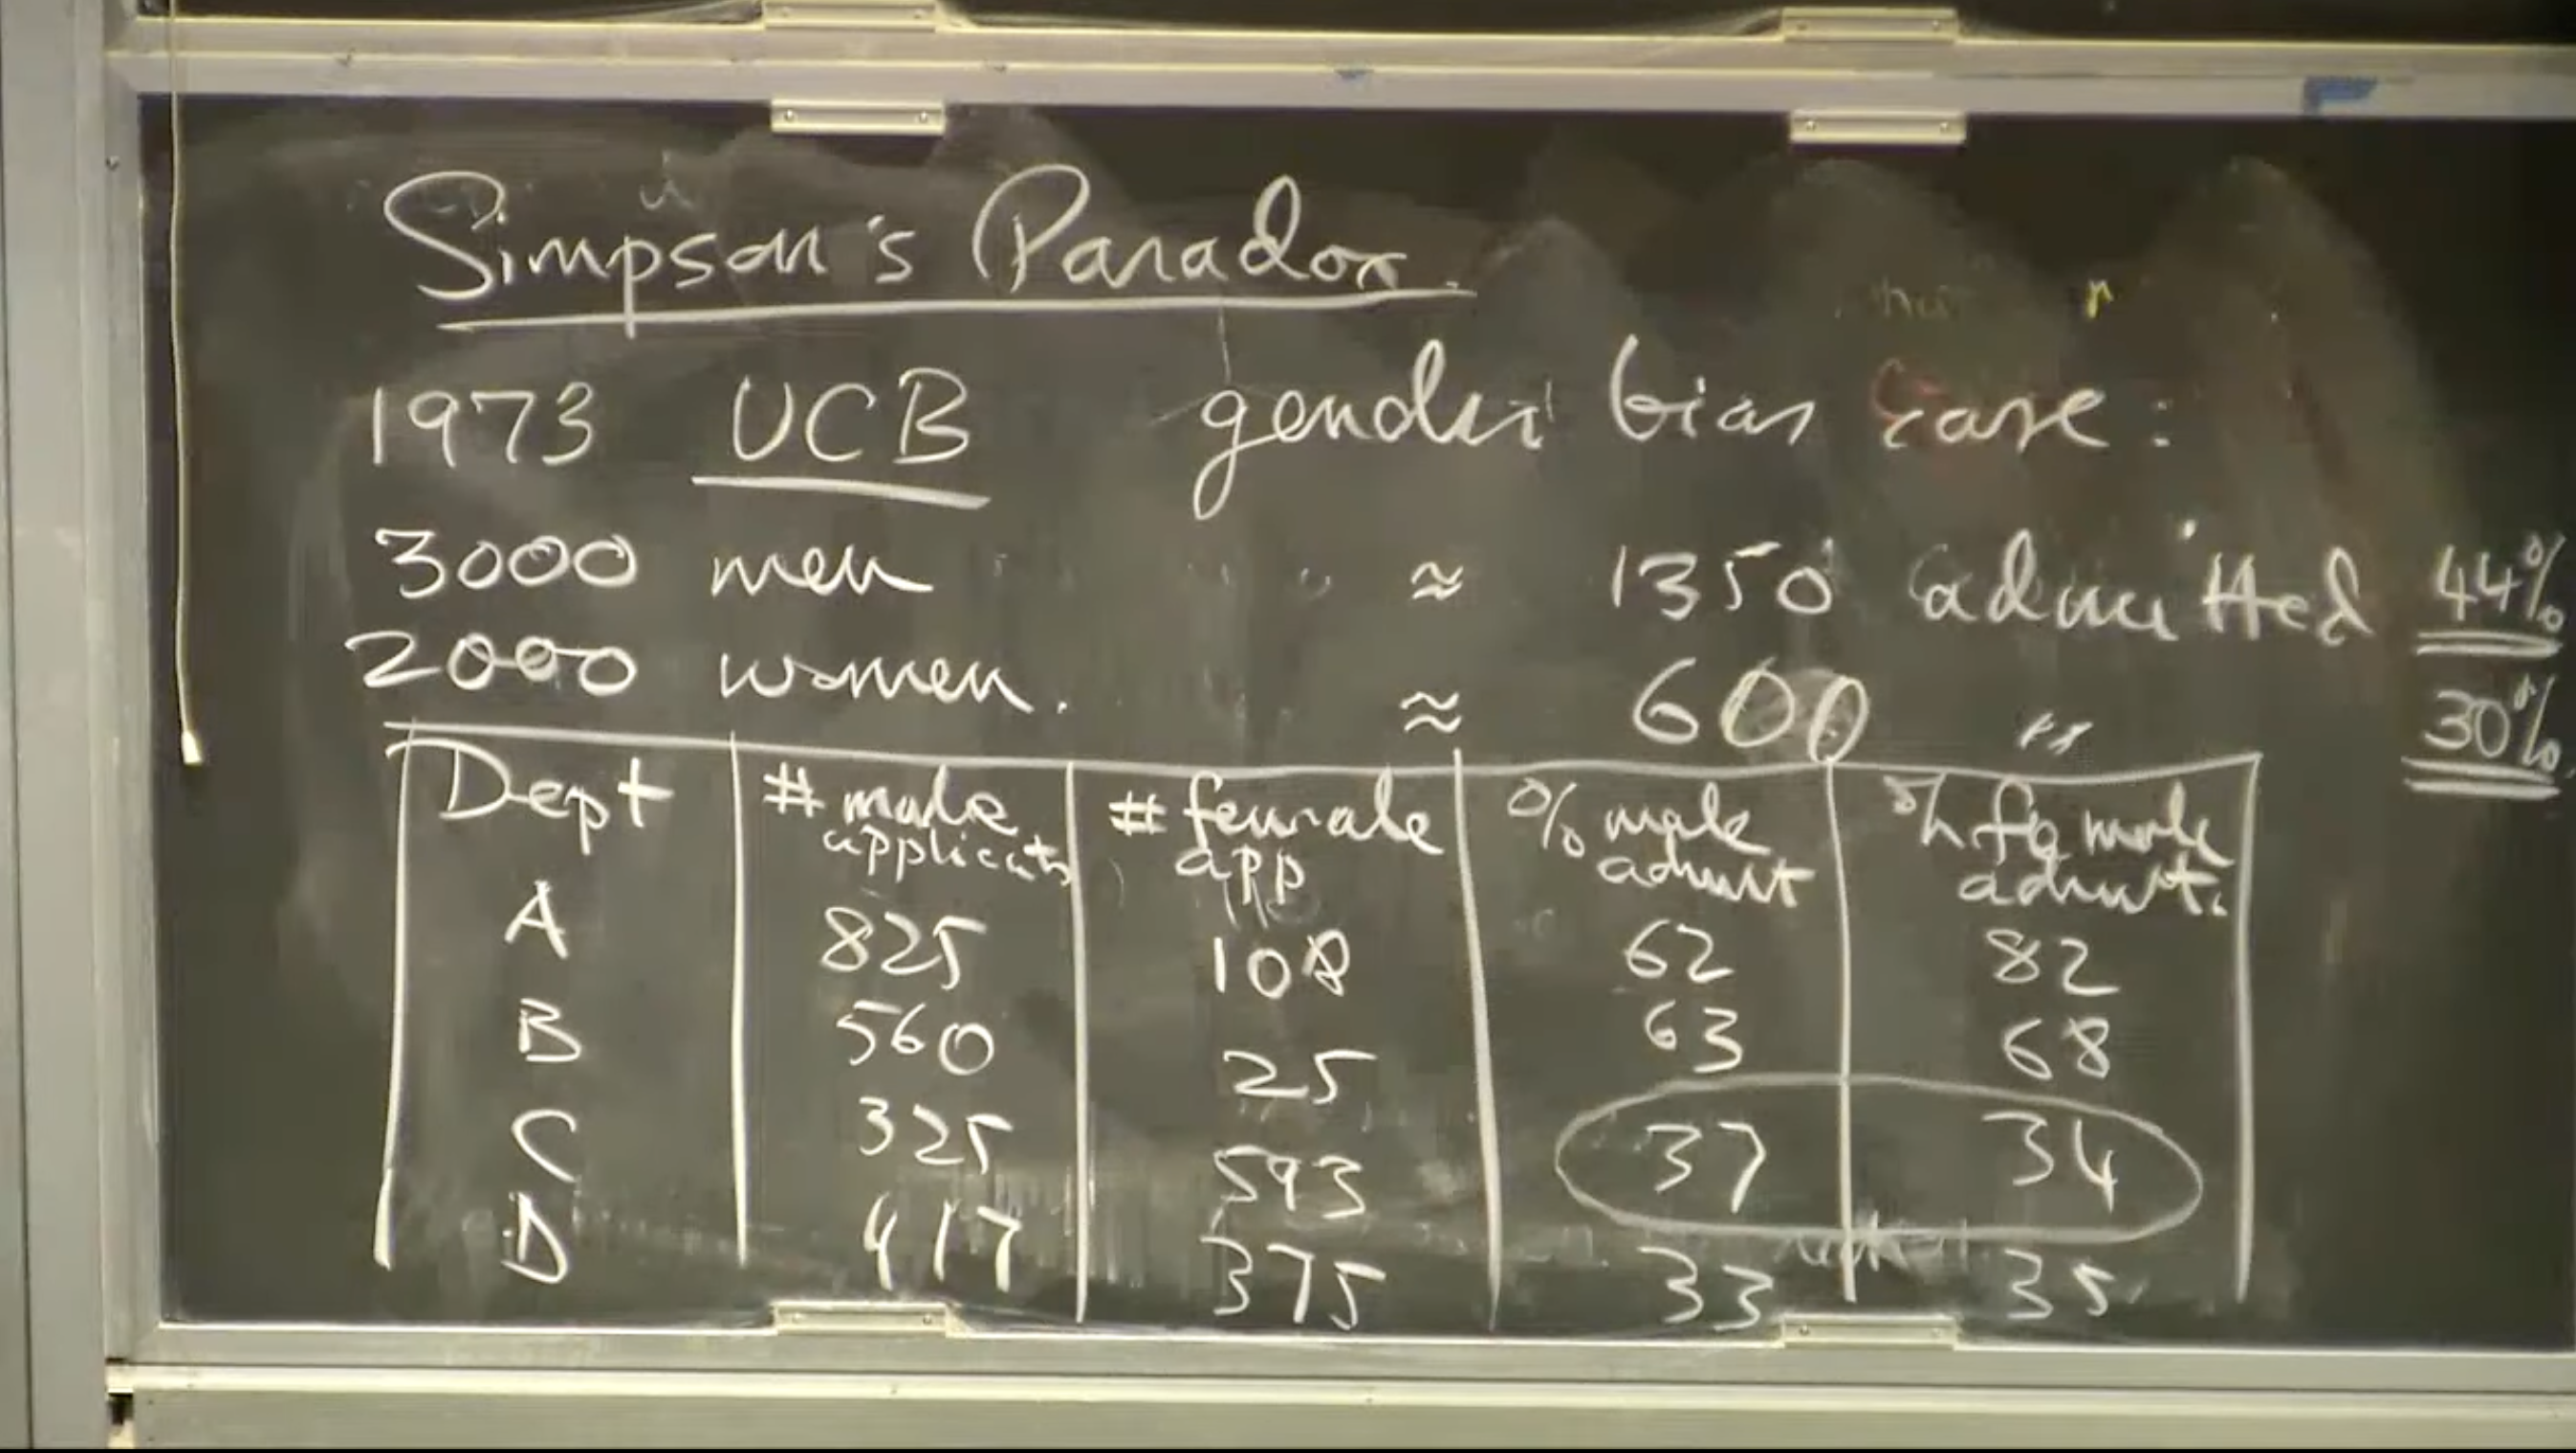 Simpson's Paradox.
1973 UCB gender bias case:
3000 men ≈ 1350 admitted 44%
2000 women. ≈ 600 " 30%
Dept # male applicants # female app % male admit % female admit.
A 825 108 62 82
B 560 25 63 68
C 325 593 37 34
D 417 375 33 35